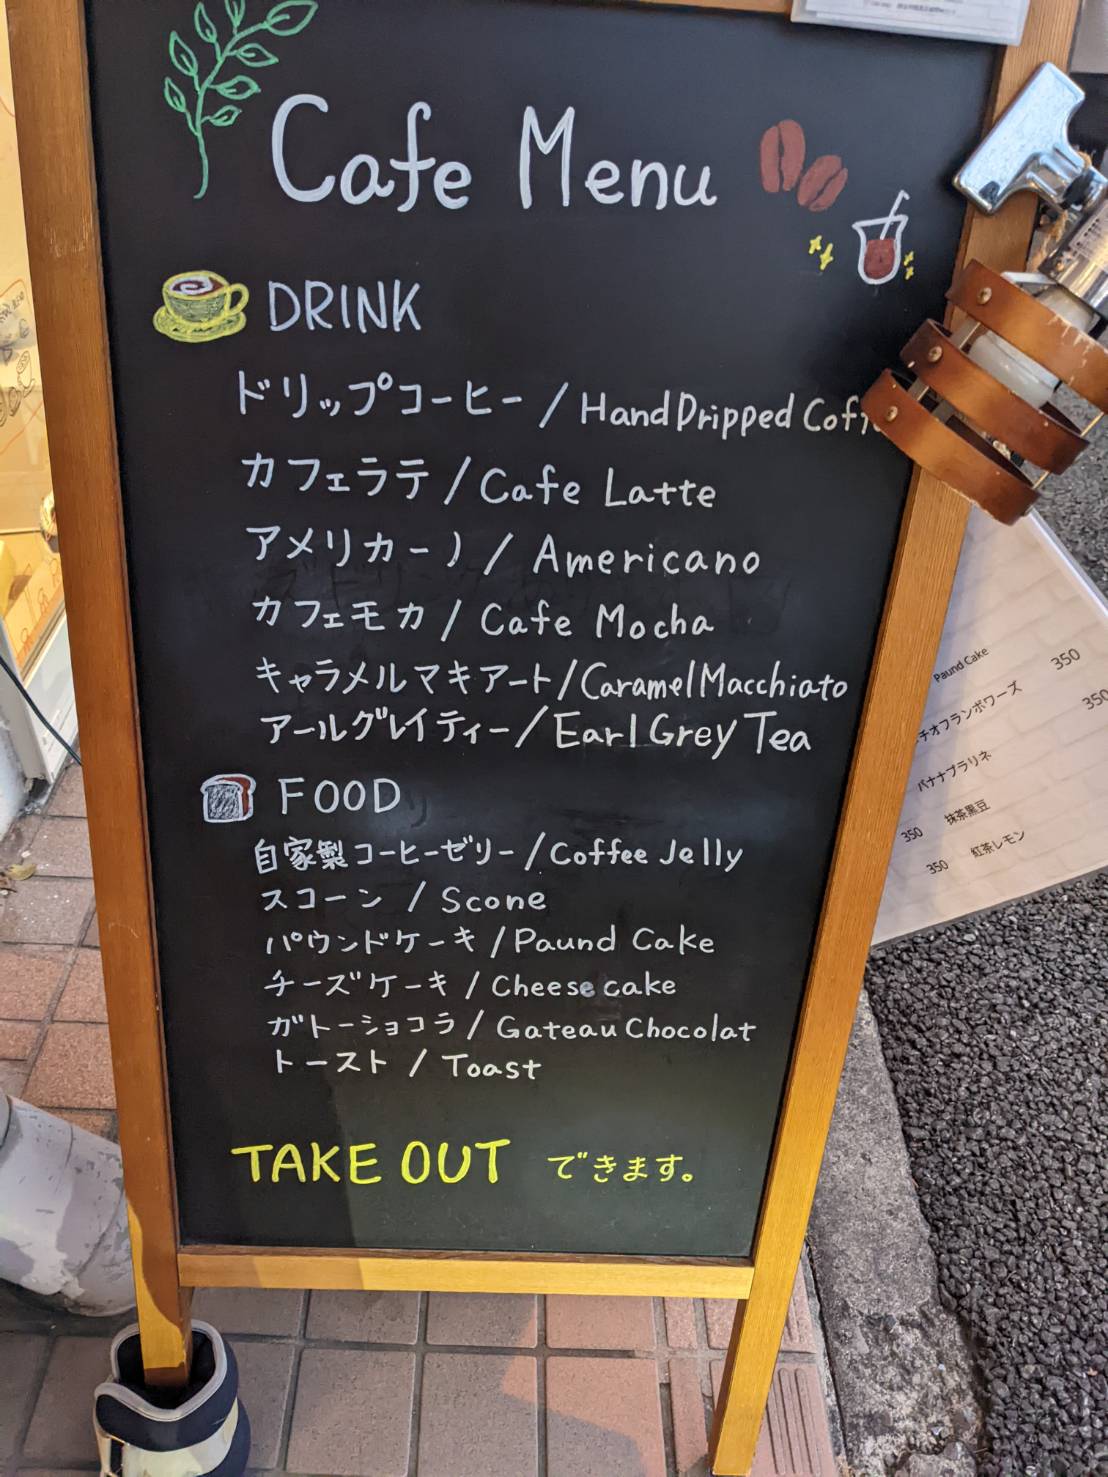 Cafe Menu
DRINK
ドリップコーヒー / Hand Dripped
カフェラテ / Cafe Latte
アメリカーノ / Americano
カフェモカ / Cafe Mocha
キャラメルマキアート / Caramel Macchiato
アールグレイティー / Earl Grey Tea
FOOD
自家製コーヒーゼリー / Coffee Jelly
スコーン / Scone
パウンドケーキ / Paund Cake
チーズケーキ / Cheese cake
ガトーショコラ / Gateau Chocolat
トースト / Toast
TAKE OUT できます。
Paund Cake 350
チオフランボワーズ 350
バナナプラリネ
350 抹茶黒豆
350 紅茶レモン